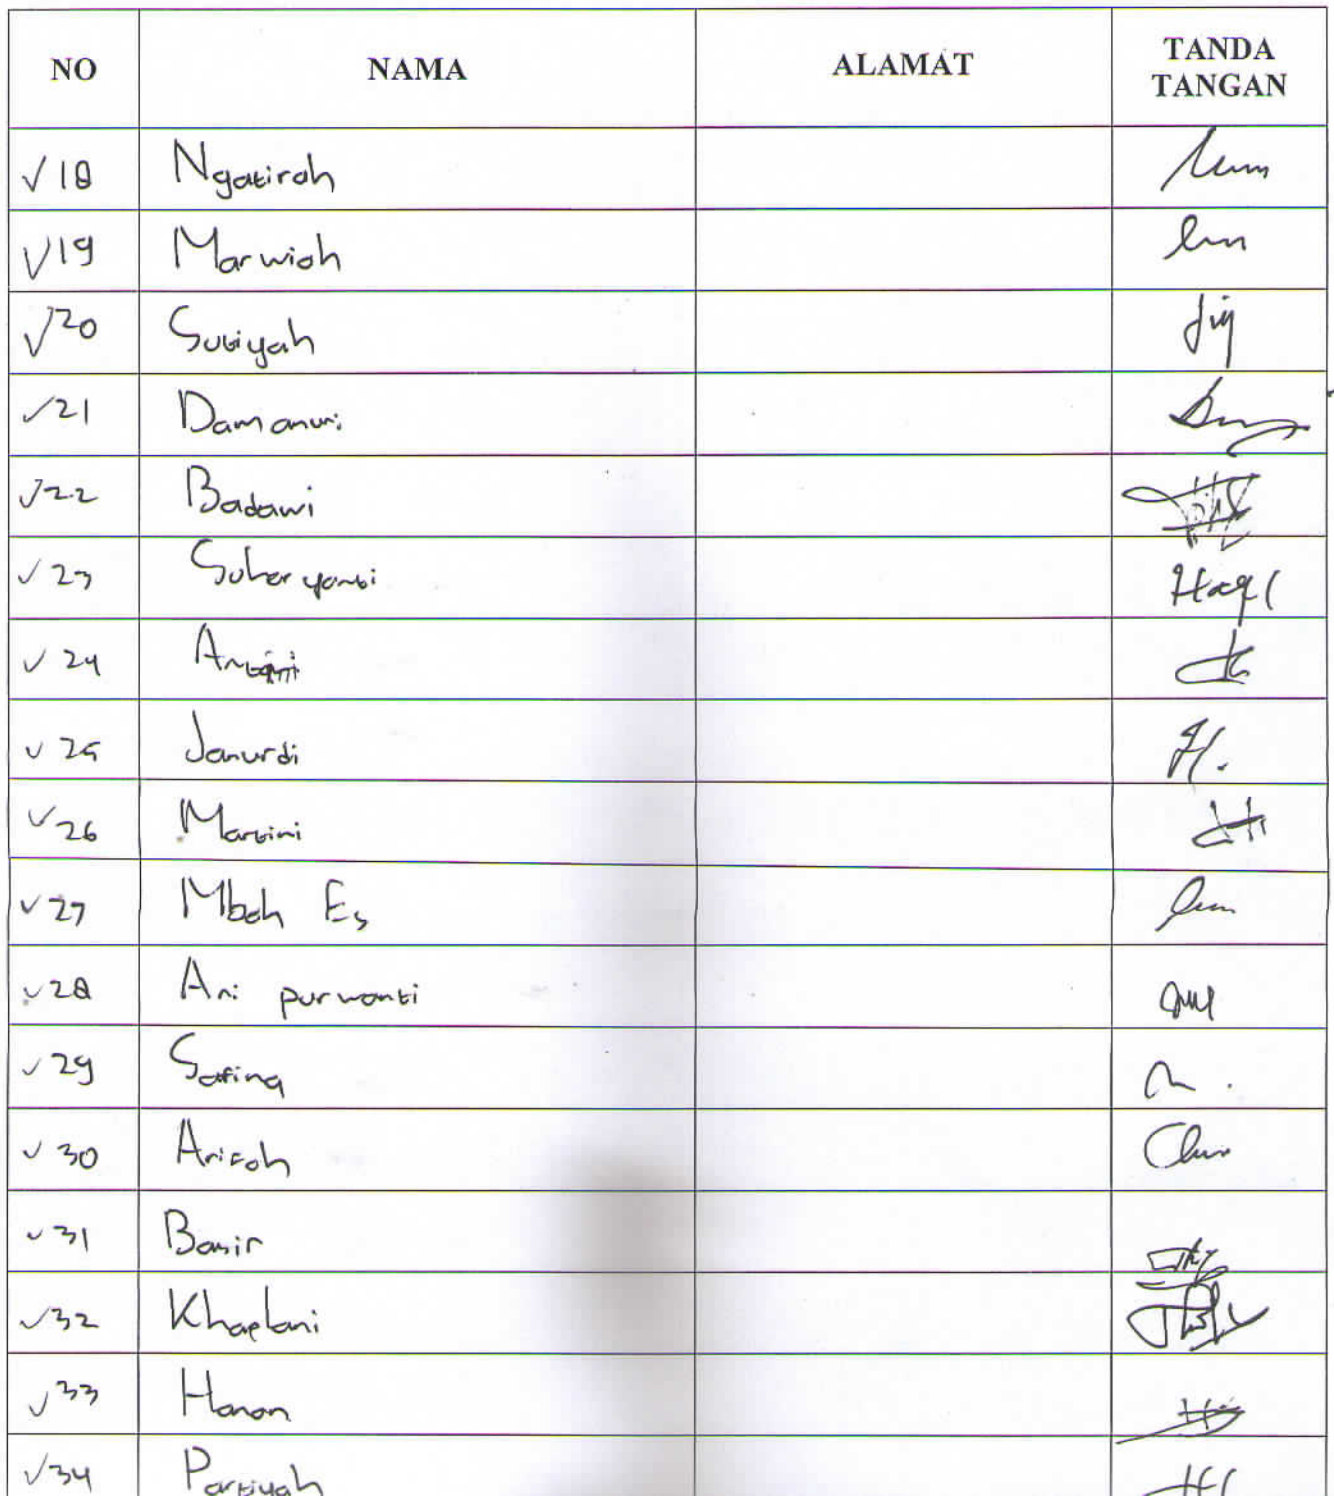 NO NAMA ALAMAT TANDA TANGAN
√ 18 Ngatirah
√ 19 Marwiah
√ 20 Sutiyah
√ 21 Damanuri
√ 22 Badawi
√ 23 Suharyanti
√ 24
√ 25 Janurdi
√ 26 Martini
√ 27 Mbah Es
√ 28 Ari purwanti
√ 29 Safina
√ 30 Arifah
√ 31 Basir
√ 32 Khaelani
√ 33 Hanan
√ 34 Partiyah